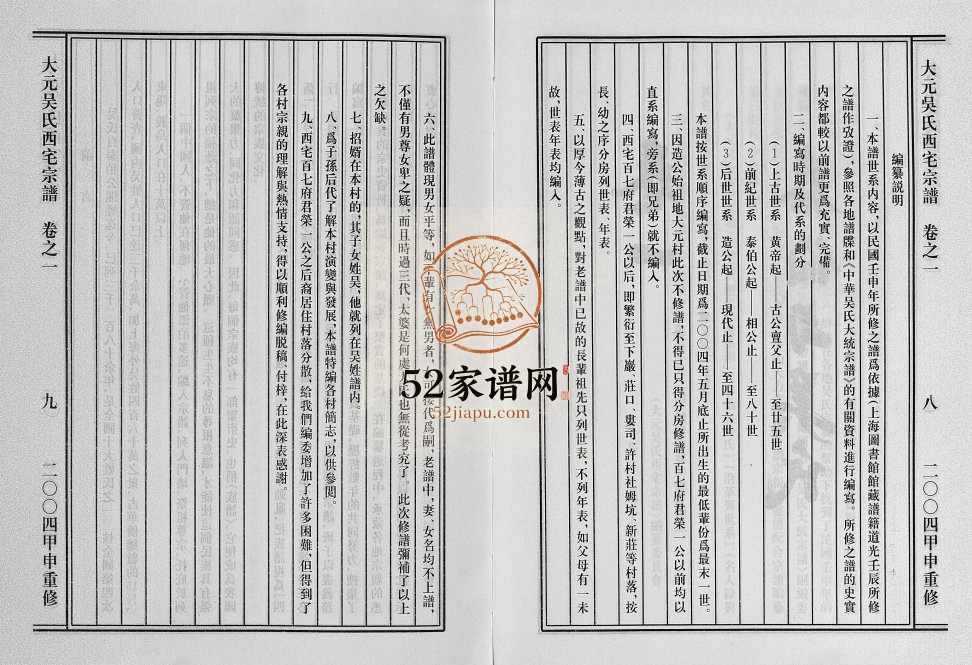 大元吳氏西宅宗譜 卷之一 八 二〇〇四甲申重修
編纂説明
一、本譜世系内容，以民國壬申年所修之譜爲依據（上海圖書館館藏譜籍道光壬辰所修
之譜作攷證），參照各地譜牒和《中華吳氏大統宗譜》的有關資料進行編寫。所修之譜的史實
内容都較以前譜更爲充實、完備。
二、編寫時期及代系的劃分
（1）上古世系 黃帝起——古公亶父止——至廿五世
（2）前紀世系 泰伯公起——相公止——至八十世
（3）后世世系 造公起——現代止——至四十六世
本譜按世系順序編寫，截止日期爲二〇〇四年五月底止所出生的最低輩份爲最末一世。
三、因造公始祖地大元村此次不修譜，不得已只得分房修譜，百七府君榮一公以前均以
直系編寫，旁系（即兄弟）就不编入。
四、西宅百七府君榮一公以后，即繁衍至下巖、莊口、婁司、許村社姆坑、新莊等村落，按
長、幼之序分房列世表、年表。
五、以厚今薄古之觀點，對老譜中已故的長輩祖先只列世表，不列年表，如父母有一未
故，世表年表均编入。
六、此譜體現男女平等，如一輩有女無男者，代爲嗣，老譜中，妻、女名均不上譜，
不僅有男尊女卑之疑，而且時過三代，太婆是何處人氏也無從考究了。此次修譜彌補了以上
之欠缺。
七、招婿在本村的，其子女姓吳，他就列在吴姓譜内。
八、爲子孫后代了解本村演變與發展，本譜特編各村簡志，以供參閲。
九、西宅百七府君榮一公之后裔居住村落分散，給我們編委增加了許多困難，但得到了
各村宗親的理解與熱情支持，得以順利修編脱稿、付梓，在此深表感謝。
大元吳氏西宅宗譜 卷之一 九 二〇〇四甲申重修
52家谱网
52jiapu.com